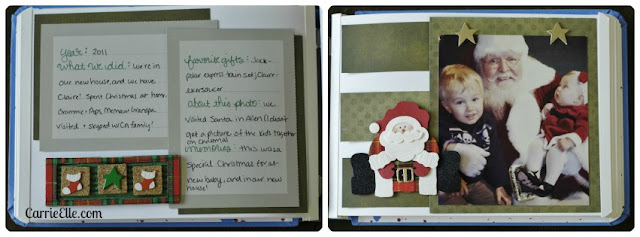 year: 2011
what we did: we're in
our new house, and we have
Claire! Spent Christmas at home.
visited + skyped w/CA family!
favorite gifts: Jack-
polar express train set, Claire-
exersaucer
about this photo: we
visited Santa in Allen (I didn't
get a picture of the kids together
on Christmas)
memories: this was a
special Christmas for a
new baby, and in our new
house!
CarrieElle.com